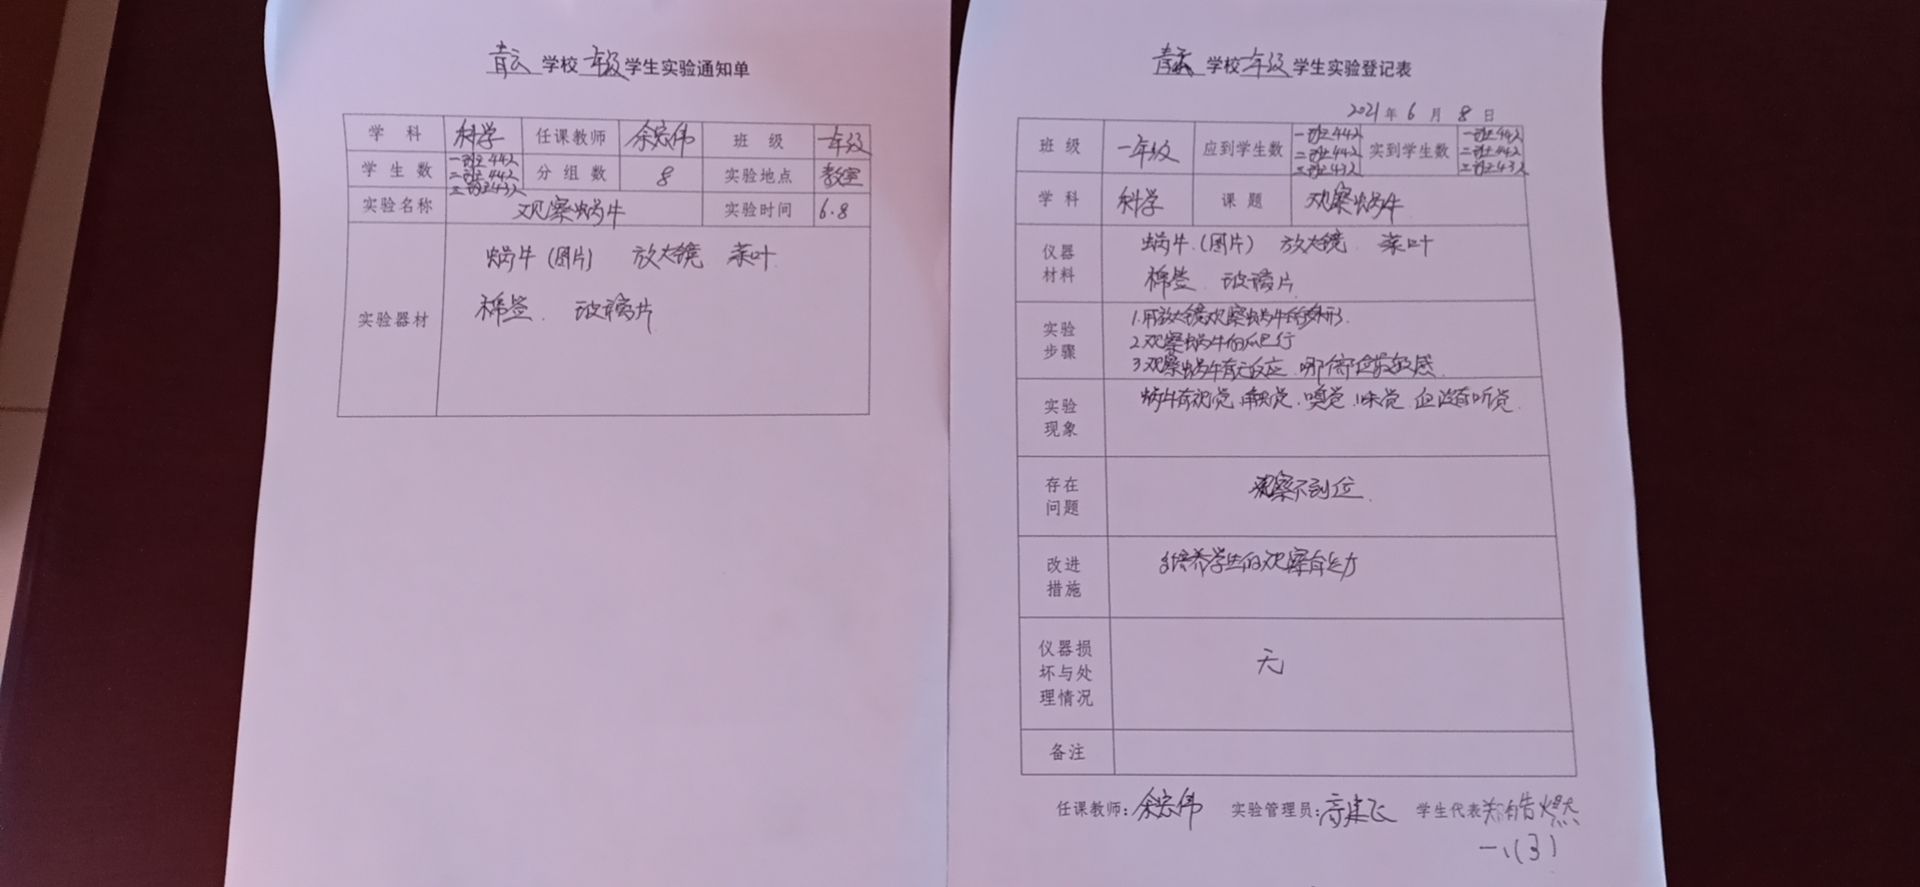 青云 学校 一年级 学生实验通知单
学 科 科学 任课教师 余宏伟 班 级 一年级
学 生 数 一班44人 二班44人 三班43人 分 组 数 8 实验地点 教室
实验名称 观察蜗牛 实验时间 6.8
实验器材
蜗牛(图片) 放大镜 菜叶
棉签 . 玻璃片
青云 学校 一年级 学生实验登记表
2021 年 6 月 8 日
班 级 一年级 应到学生数 一班44人 二班44人 三班43人 实到学生数 一班44人 二班44人 三班43人
学 科 科学 课 题 观察蜗牛
仪器材料
蜗牛.(图片) 放大镜. 菜叶
棉签. 玻璃片
实验步骤
1.用放大镜观察蜗牛的身形.
2.观察蜗牛的爬行
3.观察蜗牛有无反应.哪个部位最敏感.
实验现象
蜗牛有视觉.触觉.嗅觉.味觉.但没有听觉.
存在问题
观察不到位.
改进措施
多培养学生的观察能力
仪器损坏与处理情况
无
备注
任课教师:余宏伟 实验管理员: 学生代表 郑皓燃
一、(3)